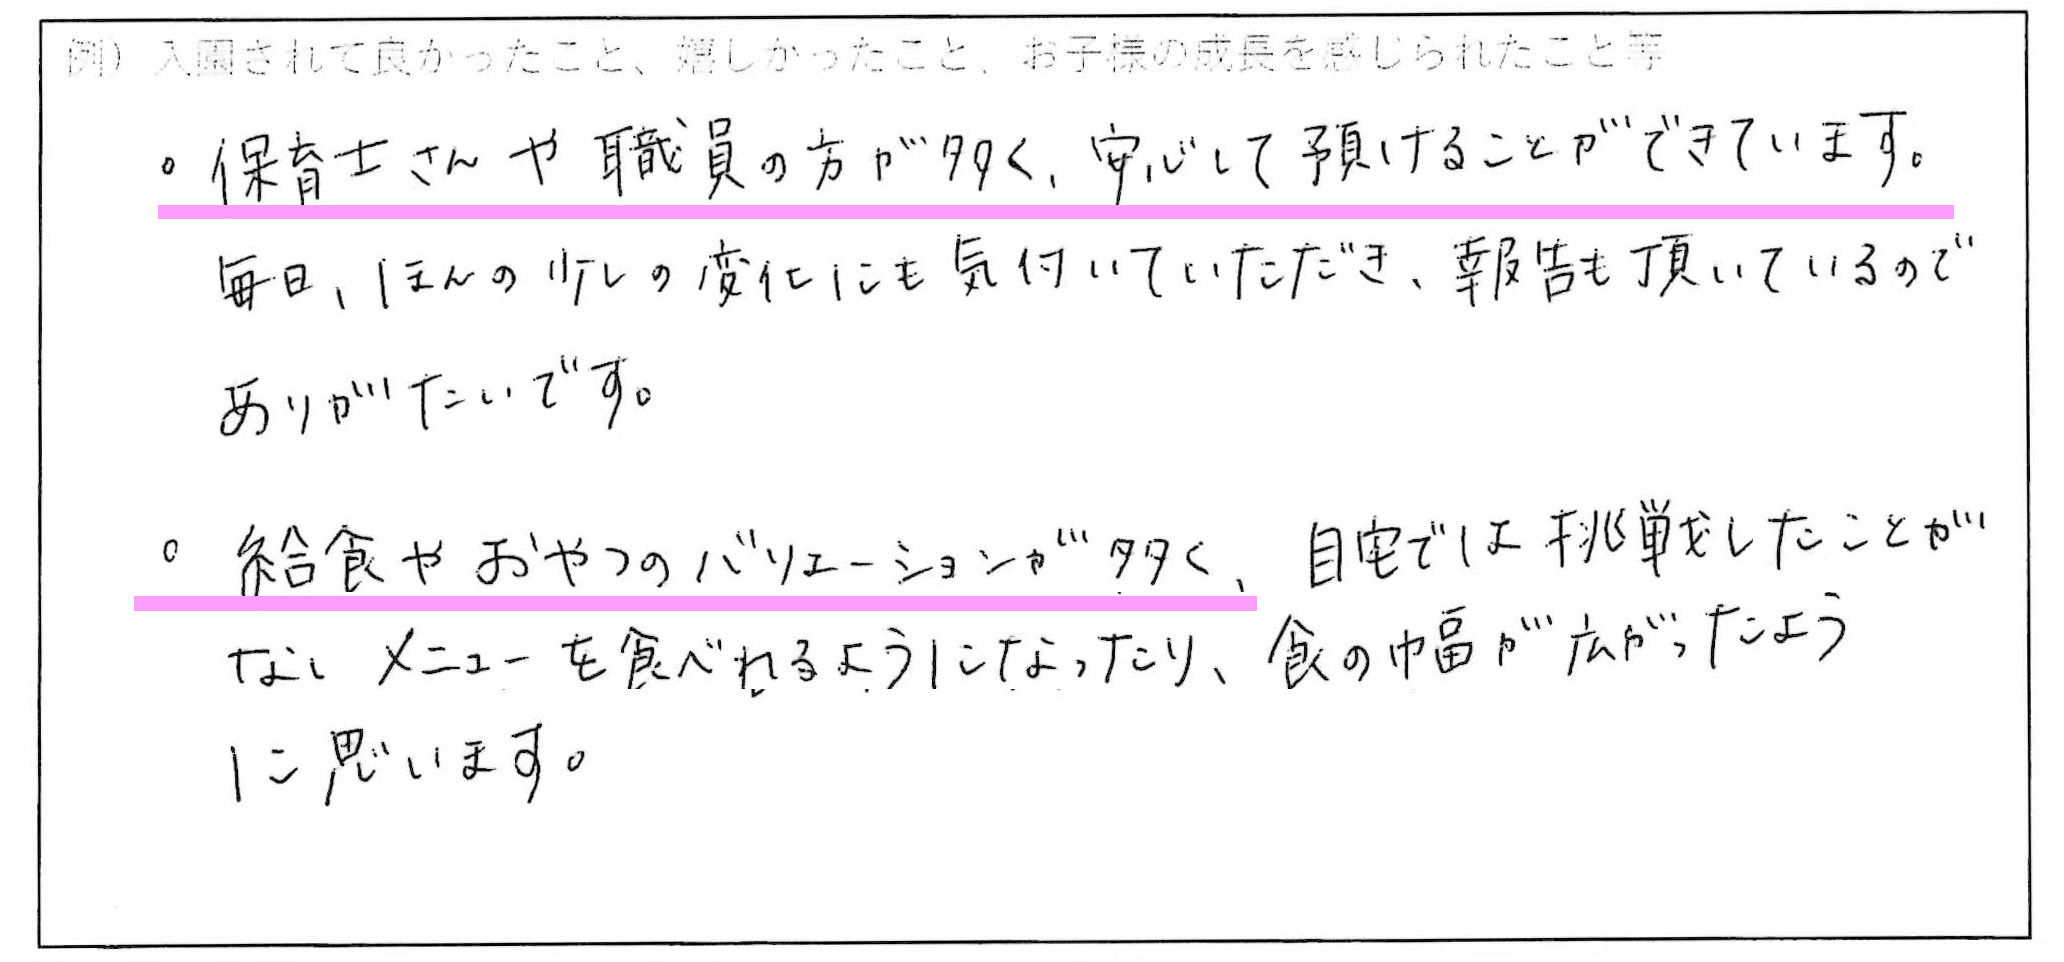 例）入園されて良かったこと、嬉しかったこと、お子様の成長を感じられたこと等
。保育士さんや職員の方が多く、安心して預けることができています。
毎日、ほんの少しの変化にも気付いていただき、報告も頂いているので
ありがたいです。
。給食やおやつのバリエーションが多く、自宅では挑戦したことが
ないメニューを食べれるようになったり、食の幅が広がったよう
に思います。